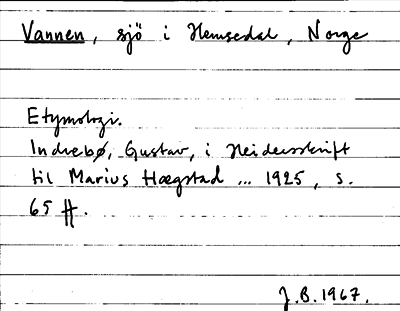 Vannen, sjö i Hemsedal, Norge
Etymologi.
Indrebø, Gustav, i Heidersskrift
til Marius Hægstad ... 1925, s.
65 ff.
J.B. 1967.